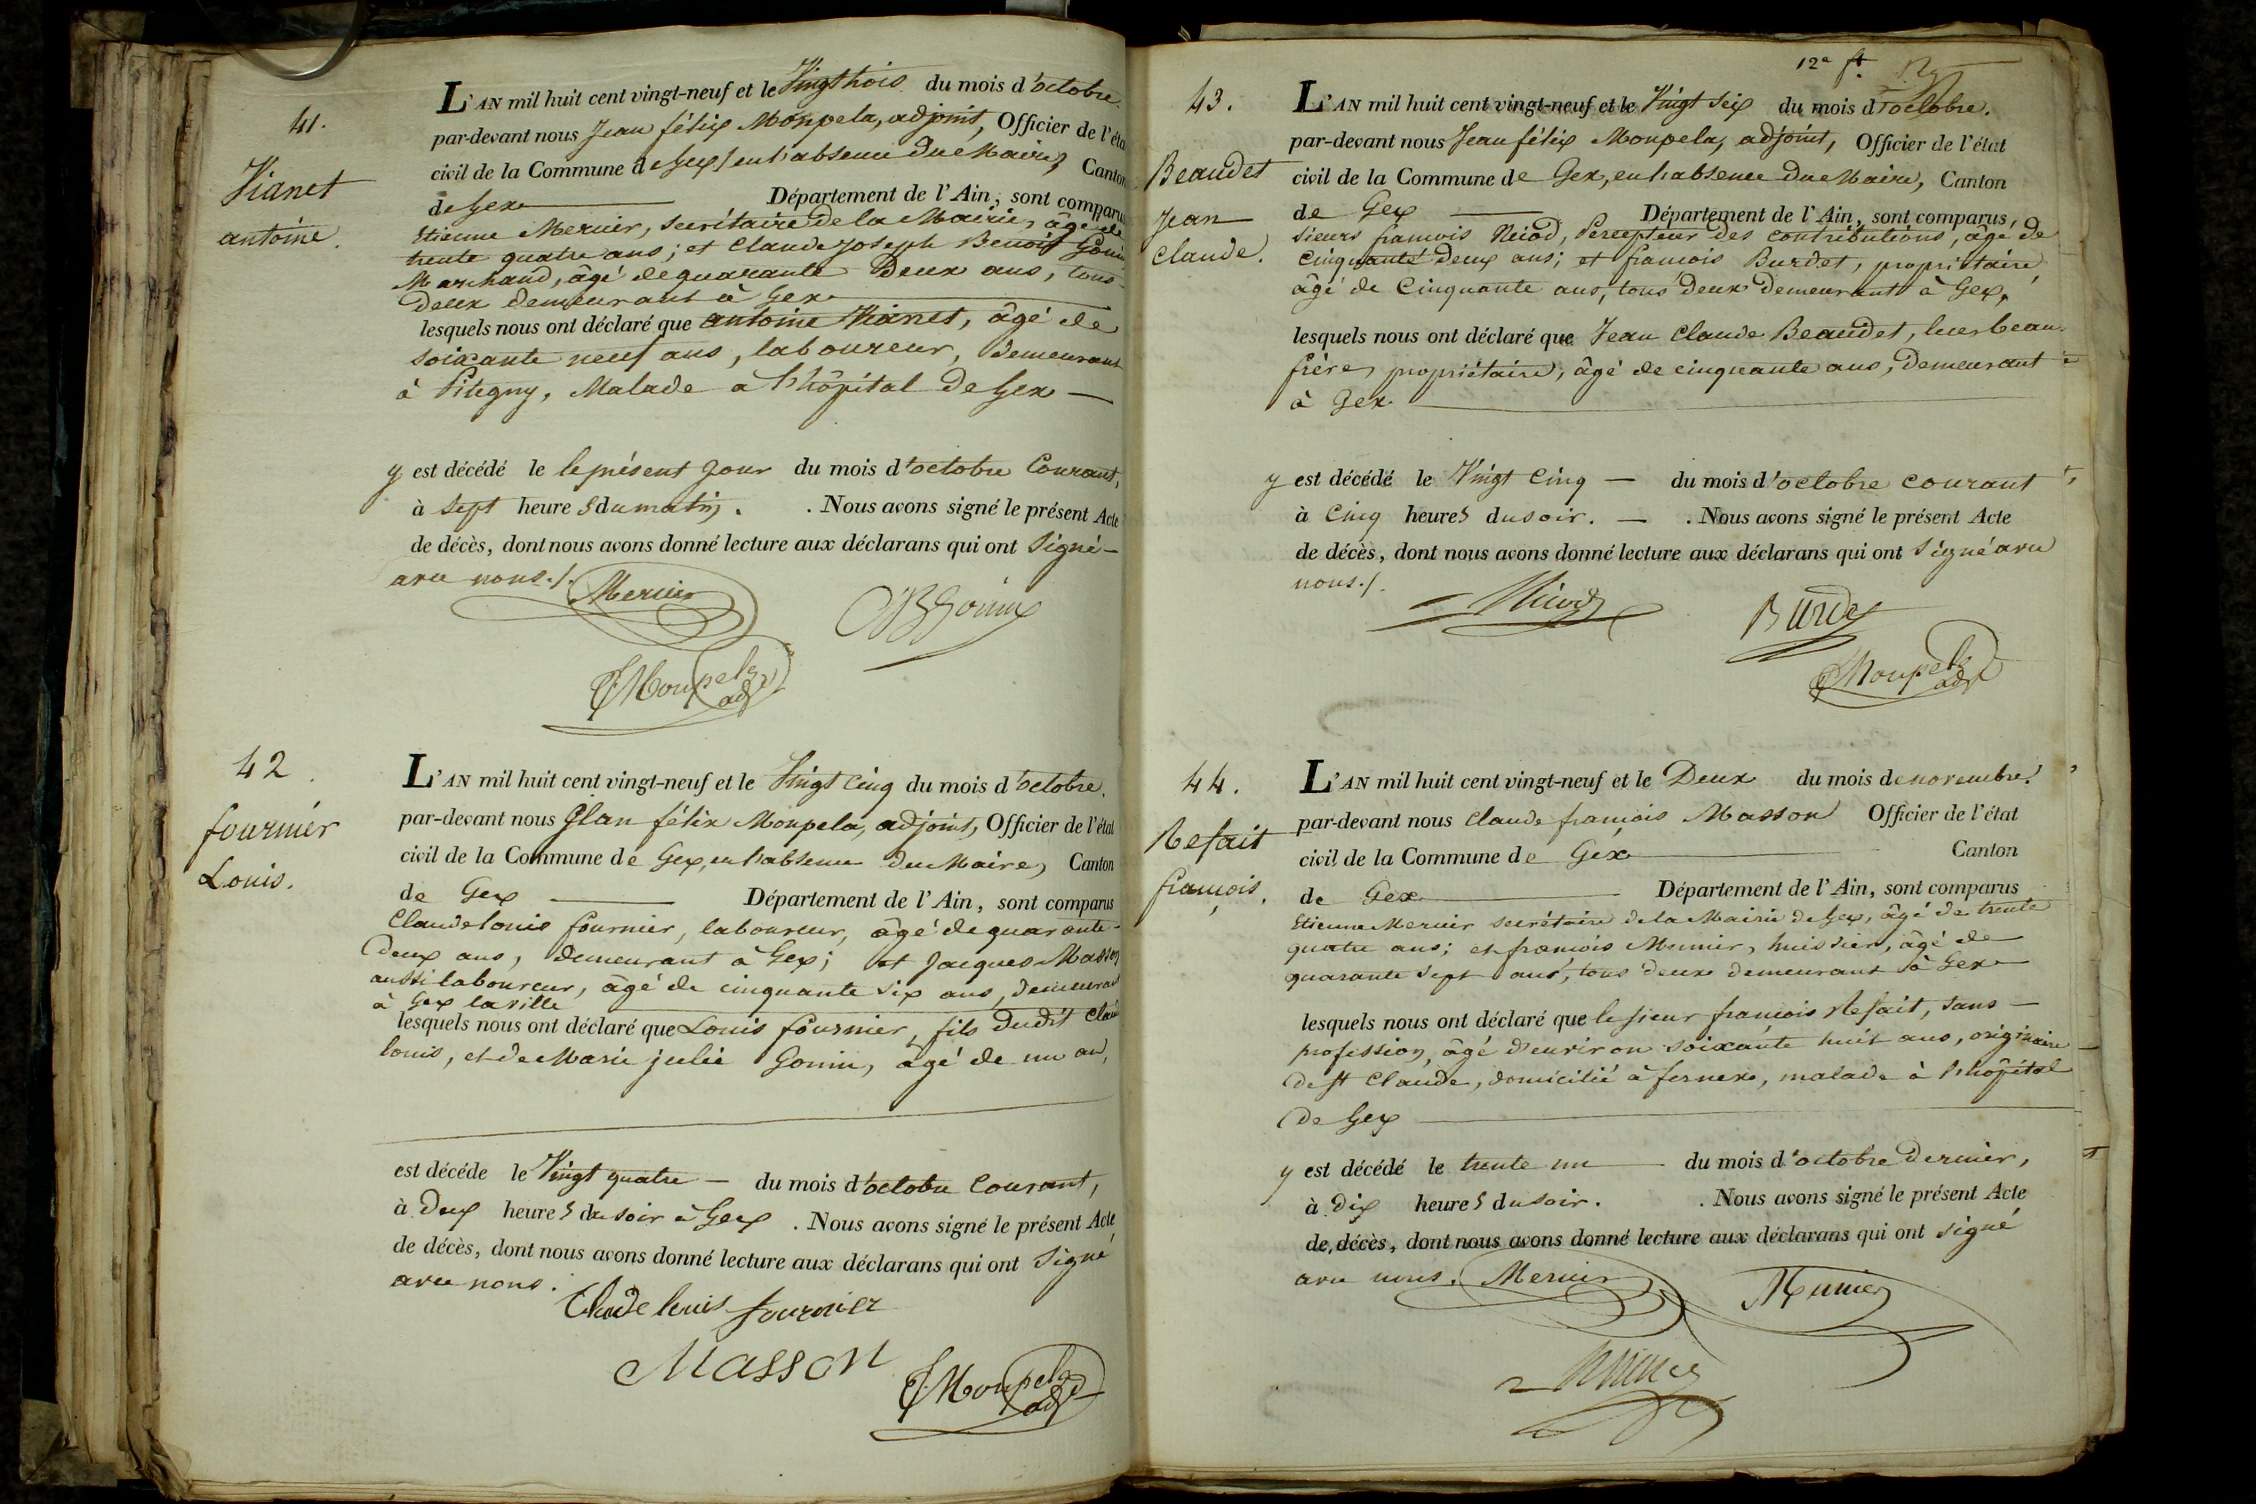 41.
Vianet
antoine.
L'AN mil huit cent vingt-neuf et le Vingt trois du mois d'octobre.
par-devant nous Jean félix Monpela, adjoint, Officier de l'éta
civil de la Commune de Gex, en l'absence du Maire, Canton
de Gex Département de l'Ain, sont comparus
Etienne Mercier, secrétaire de la Mairie, âgé de
trente quatre ans; et Claude Joseph Benoit Gonin
Marchand, âgé de quarante Deux ans, tous
deux demeurant à Gex
lesquels nous ont déclaré que antoine Vianet, âgé de
soixante neuf ans, laboureur, demeurant
à Pitegny, Malade a l'hôpital de Gex
y est décédé le le présent Jour du mois d'octobre Courant,
à sept heures du matin. . Nous avons signé le présent Acte
de décès, dont nous avons donné lecture aux déclarans qui ont signé
avec nous./.
Mercier
JB Gonin
JF Monpela
adj
42.
fournier
Louis.
L'AN mil huit cent vingt-neuf et le Vingt Cinq du mois d'octobre.
par-devant nous Jean félix Monpela, adjoint, Officier de l'état
civil de la Commune de Gex, en l'absence du Maire, Canton
de Gex Département de l'Ain, sont comparus
Claude louis fournier, laboureur, âgé de quarante
deux ans, demeurant à Gex; et Jacques Masson
aussi laboureur, âgé de cinquante six ans, demeurant
à Gex la ville
lesquels nous ont déclaré que Louis fournier, fils dudit Claude
louis, et de Marie julie Gonin, âgé de un an,
est décéde le Vingt quatre du mois d'octobre Courant,
à Deux heures du soir à Gex . Nous avons signé le présent Acte
de décès, dont nous avons donné lecture aux déclarans qui ont signé
avec nous.
Claude louis fournier
MASSON
JF Monpela
adj
12e ft.
43.
Beaudet
Jean
Claude.
L'AN mil huit cent vingt-neuf et le Vingt Six du mois d'octobre.
par-devant nous Jean félix Monpela, adjoint, Officier de l'état
civil de la Commune de Gex, en l'absence du Maire, Canton
de Gex Département de l'Ain, sont comparus
sieurs françois Nicod, Percepteur des contributions, âgé de
Cinquante Deux ans; et francois Burdet, propriétaire
âgé de Cinquante ans, tous deux demeurant à Gex,
lesquels nous ont déclaré que Jean Claude Beaudet, leur beau
frère, propriétaire, âgé de cinquante ans, Demeurant
à Gex
y est décédé le Vingt Cinq du mois d'octobre courant,
à Cinq heures du soir. . Nous avons signé le présent Acte
de décès, dont nous avons donné lecture aux déclarans qui ont signé avec
nous./.
Nicod
Burdet
JF Monpela
adj
44.
Refait
françois.
L'AN mil huit cent vingt-neuf et le Deux du mois de novembre.
par-devant nous Claude françois Masson Officier de l'état
civil de la Commune de Gex Canton
de Gex Département de l'Ain, sont comparus
Etienne Mercier secrétaire de la Mairie de Gex, âgé de trente
quatre ans; et francois Munier, huissier, âgé de
quarante sept ans, tous deux demeurant à Gex
lesquels nous ont déclaré que le sieur françois Refait, sans
profession, âgé d'environ soixante huit ans, originaire
de St Claude, domicilié à fernex, malade à l'hôpital
de Gex
y est décédé le trente un du mois d'octobre dernier,
à Dix heures du soir. . Nous avons signé le présent Acte
de décès, dont nous avons donné lecture aux déclarans qui ont signé
avec nous.
Mercier
Munier